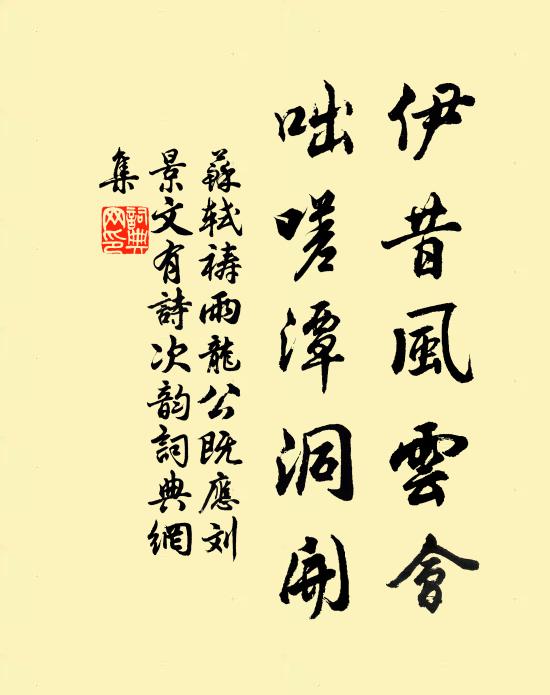 伊昔風雲會
咄嗟潭洞開
蘇軾禱雨龍公既應刘
景文有詩次韵詞典網
集
詞典网印